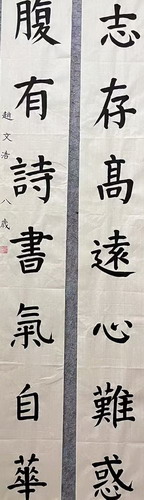 志存高遠心難惑
腹有詩書氣自華
趙文浩 八歲